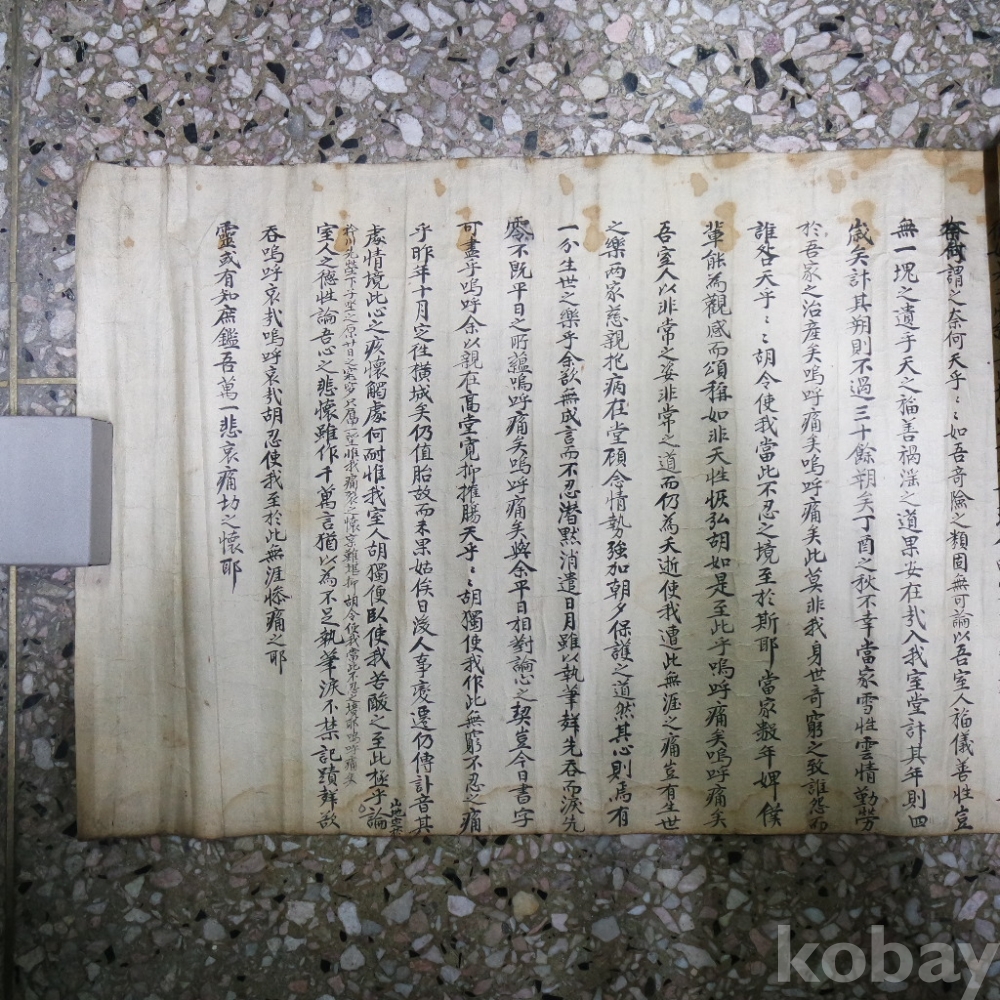 謂之奈何天乎〻如吾奇險之類固無可論以吾室人福儀善性豈
無一塊之遺乎天之福善禍淫之道果安在哉入我室堂計其年則四
歲矣計其朔則不過三十餘朔矣丁酉之秋不幸當家雪性雲情勤勞
於吾家之治產矣嗚呼痛矣嗚呼痛矣此莫非我身世奇窮之致誰怨而
誰咎天乎〻胡令使我當此不忍之境至於斯耶當家数年婢僕
輩能為觀感而頌稱如非天性恢弘胡如是至此乎嗚呼痛矣嗚呼痛矣
吾室人以非常之姿非常之道而仍為夭逝使我遭此無涯之痛豈有生世
之樂两家慈親抱病在堂碩念情勢強加朝夕保護之道然其心則焉有
一分生世之樂乎余欲無成言而不忍潛默消遣日月雖以執筆辞先吞而淚先
零不既平日之所蘊嗚呼痛矣嗚呼痛矣與余平日相對論心之契豈今日書字
可盡乎嗚呼余以親在高堂寬抑摧腸天乎〻胡獨使我作此無窮不忍之痛
乎昨年十月定往橫城矣仍值胎故而未果姑俟日後人事変遷仍傳訃音其
處情境此心之疚懷觸處何耐惟我室人胡獨便臥使我苦酸之至此極乎論
胡令使我當此不忍之境耶嗚呼痛矣
室人之德性論吾心之悲懷雖作千萬言猶以為不足執筆淚不禁記蹟辞欲
吞嗚呼哀哉嗚呼哀哉胡忍使我至於此無涯慘痛之耶
靈或有知庶鑑吾萬一悲哀痛切之懷耶
kobay